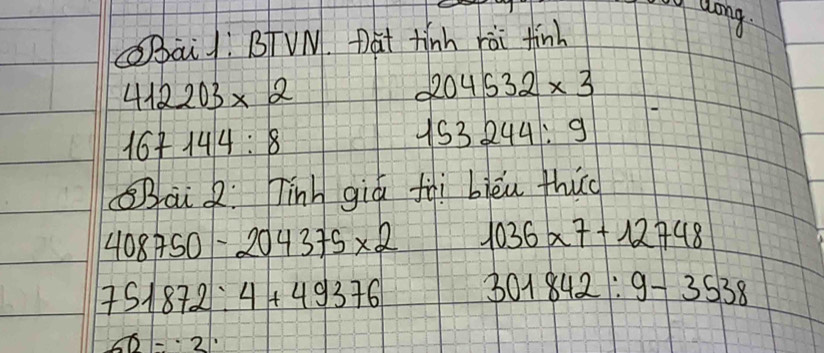 dong.
Bài 1: BTVN. Đặt tính rồi tính
412203 x 2 204532 x 3
167144 : 8 153244 : 9
Bài 2: Tính giá trị biểu thức
408750 - 204375 x 2 1036 x 7 + 12748
751872 : 4 + 49376 301842 : 9 - 3538